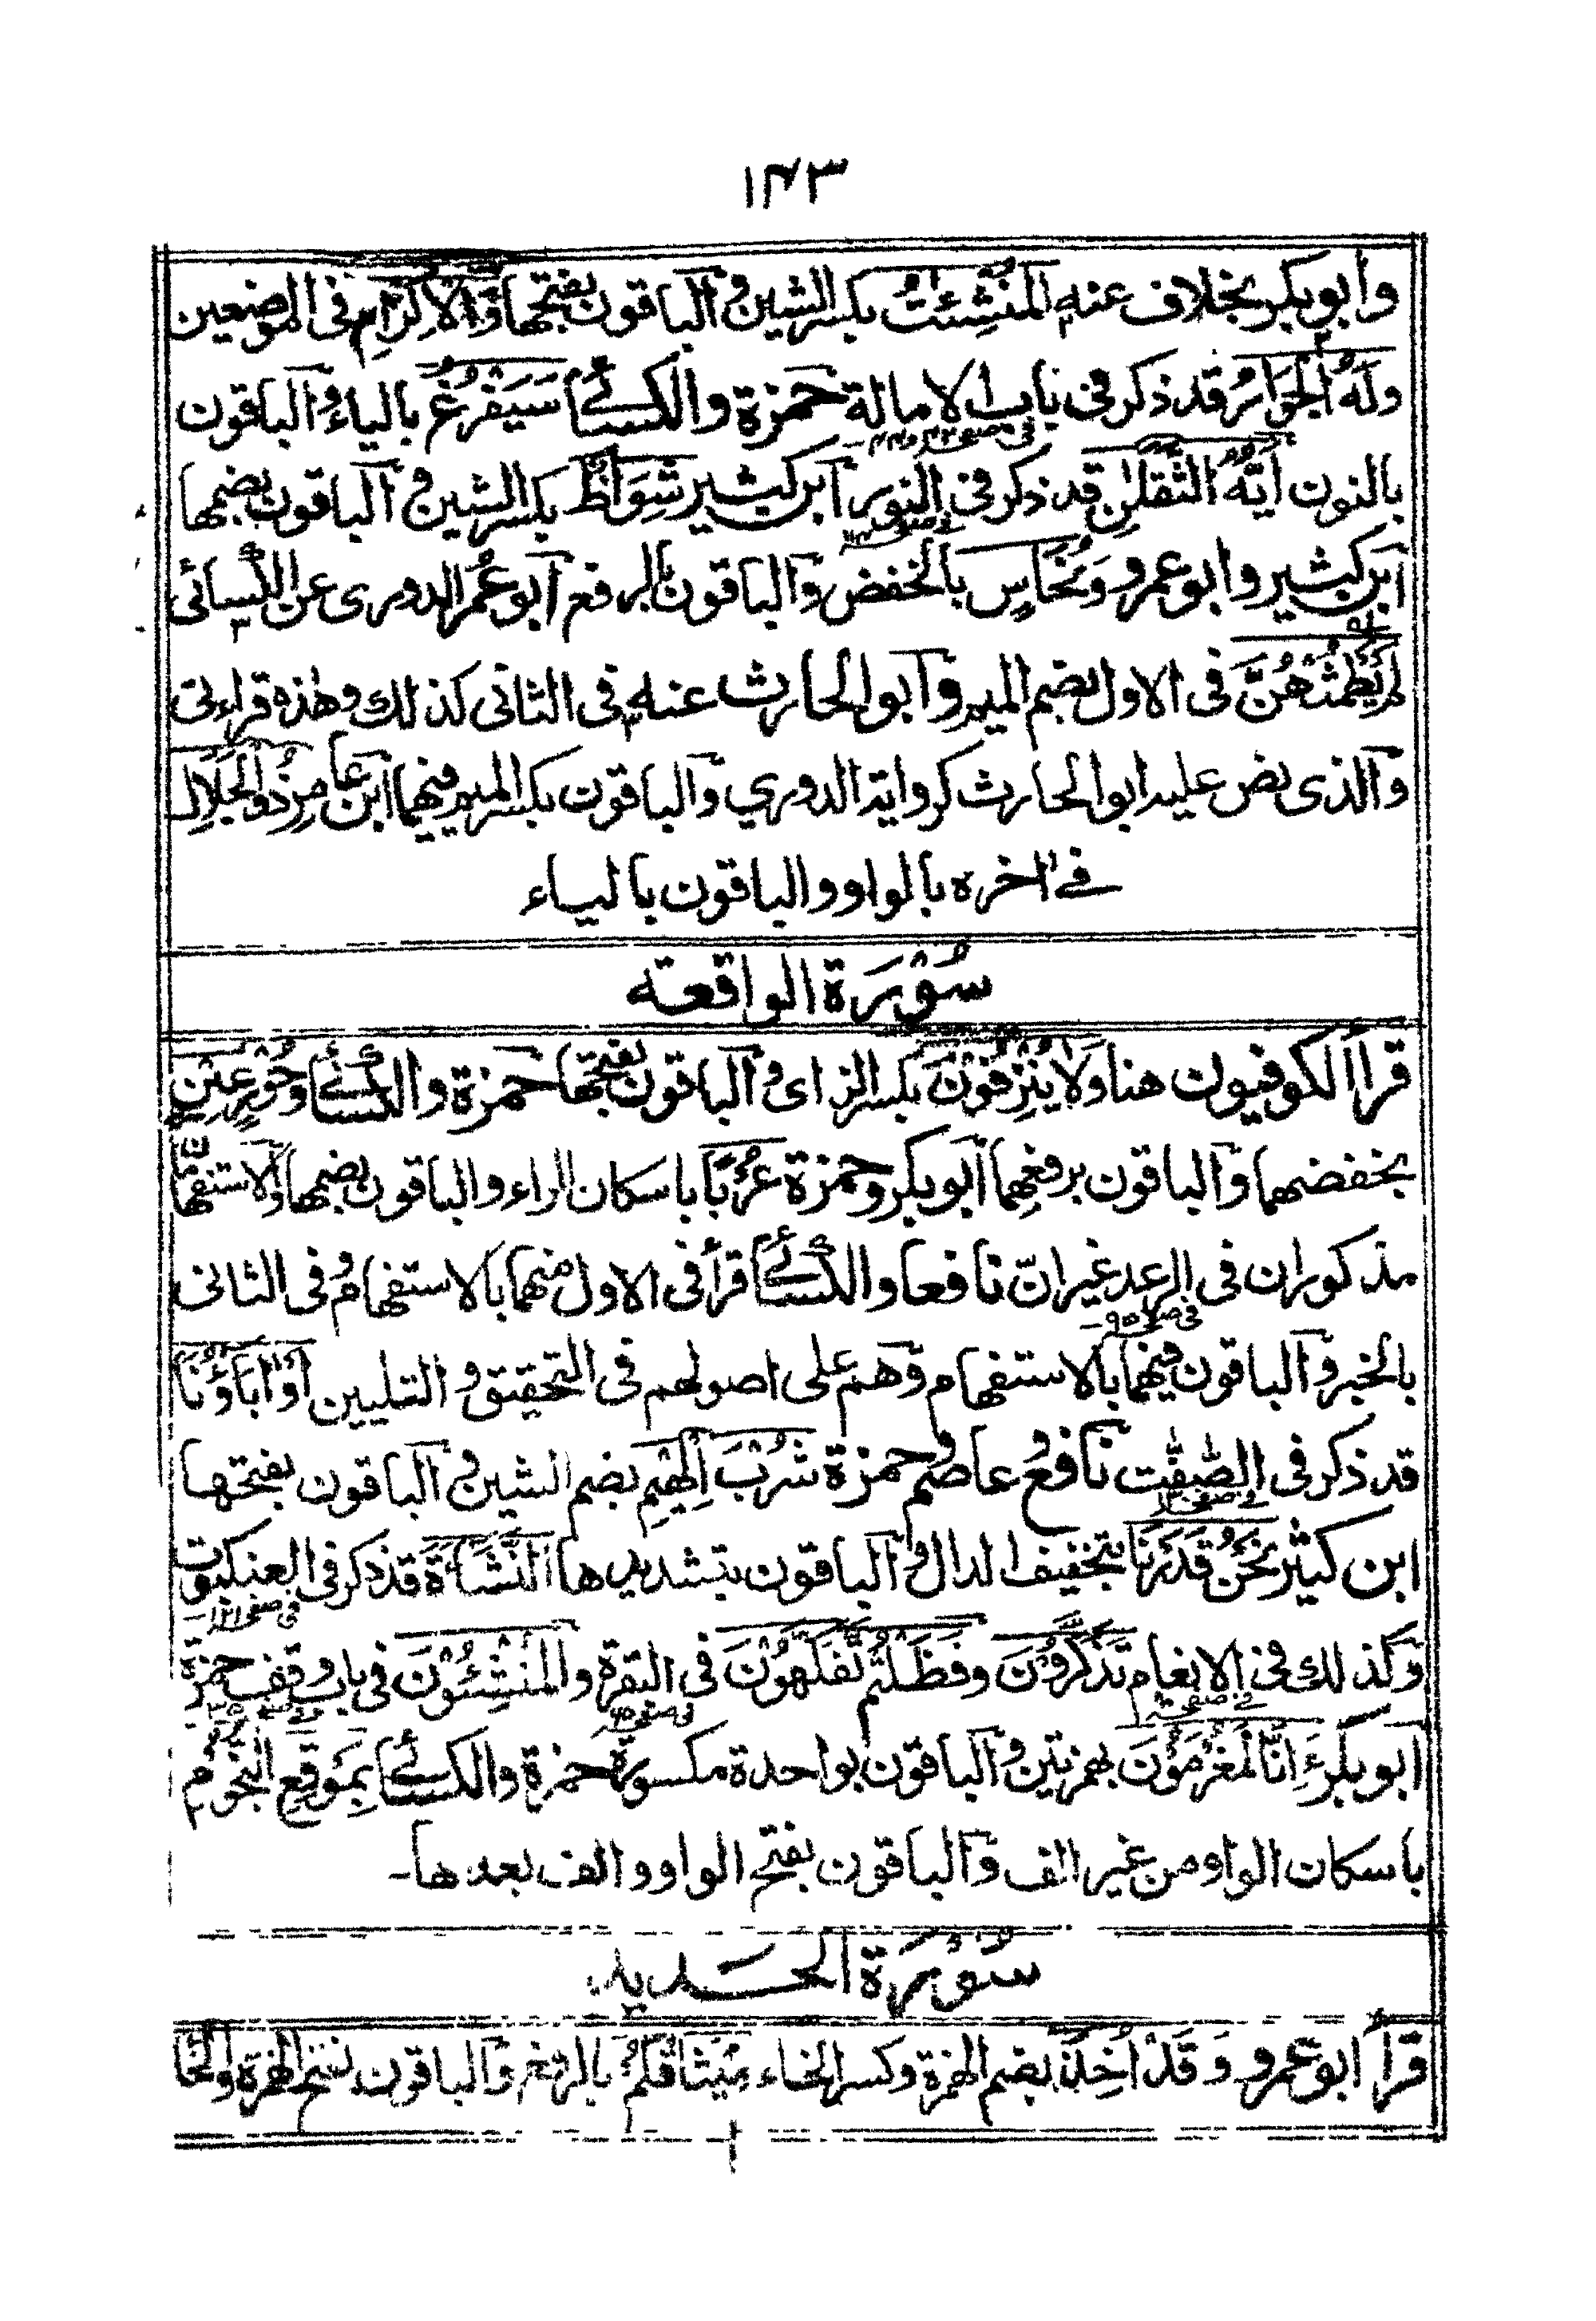 ١٤٣
وابوبكر بخلاف عنه المُنْشِئٰتُ بكسر الشين والباقون بفتحها وَالْاِكْرَامِ في الموضعين
وله الْجَوَارُ قد ذكر في باب الامالة حمزة والكسائے سَيَفْرُغُ بالياء والباقون
بالنون اَيُّهَ الثَّقَلٰنِ قد ذكر في النور ابن كثير شِوَاظٌ بكسر الشين والباقون بضمها
ابن كثير وابو عمرو وَنُحَاسٍ بالخفض والباقون بالرفع ابو عُمر الدوري عن الكسائي
لم يَطْمُثْهُنَّ في الاول بضم الميم وابو الحارث عنه في الثاني كذلك وهٰذه قراءتي
والذي نص عليه ابو الحارث كرواية الدوري والباقون بكسر الميم فيهما ابن عامر ذُو الْجَلَالِ
فے اٰخره بالواو والباقون بالياء
سُوْرَة الواقعة
قرأ الكوفيون هنا وَلَا يُنْزِفُوْنَ بكسر الزاي والباقون بفتحها حمزة والكسائے وَحُوْرٍ عِيْنٍ
بخفضهما والباقون برفعهما ابوبكر وحمزة عُرْبًا باسكان الراء والباقون بضمها والاستفهامان
مذكوران في الرعد غير انّ نافعا والكسائے قرأ في الاول منهما بالاستفهام وفي الثاني
بالخبر والباقون فيهما بالاستفهام وهم على اصولهم في التحقيق والتليين اَوَاٰبَاؤُنَا
قد ذكر في الصّٰفّٰت نافع وعاصم وحمزة شُرْبَ الْهِيْمِ بضم الشين والباقون بفتحها
ابن كثير نَحْنُ قَدَرْنَا بتخفيف الدال والباقون بتشديدها النَّشْاَةَ قد ذكر في العنكبوت
وكذلك في الانعام تَذَكَّرُوْنَ وفَظَلْتُمْ تَفَكَّهُوْنَ في البقرة والْمُنْشِئُوْنَ في باب وقف حمزة
ابوبكر ءَاِنَّا لَمُغْرَمُوْنَ بهمزتين والباقون بواحدة مكسورة حمزة والكسائے بِمَوْقِعِ النجوم
باسكان الواو من غير الف والباقون بفتح الواو والف بعدها-
سُوْرَة الحديد
قرأ ابو عمرو وَقَدْ اُخِذَ بضم الهمزة وكسر الخاء مِيْثَاقُكُمْ بالرفع والباقون بفتح الهمزة والخا